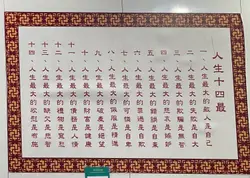 人生十四最
一、人生最大的敵人是自己
二、人生最大的失敗是自大
三、人生最大的無是欺騙
四、人生最大的悲哀是嫉妒
五、人生最大的錯是自
六、人生最大的罪過是自欺
七、人生最大的可憐是自卑
八、人生最大的是精進
九、人生最大的破產是絕望
十、人生最大的財富是健康
十一、人生最大的債務是人情
十二、人生最大的禮物是寬恕
十三、人生最大的欠是智
十四、人生最大的欣慰是布施